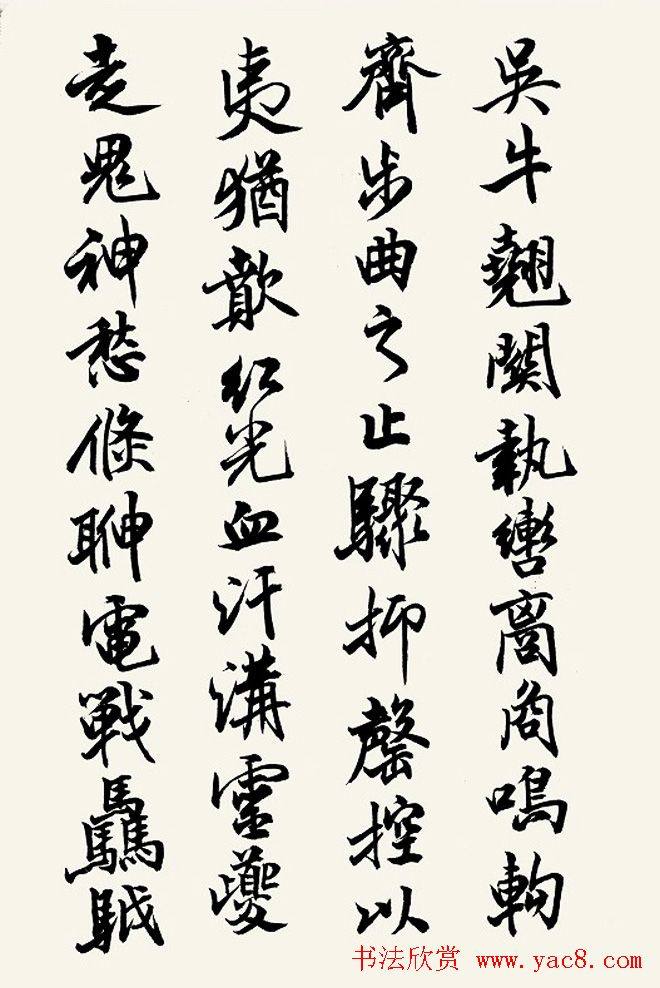 吳牛翹關執轡商鳴軥
齊步曲之止驟抑罄控以
夷猶歕紅光血汗溝靈夔
走鬼神愁電戰驫
书法欣赏 www.yac8.com